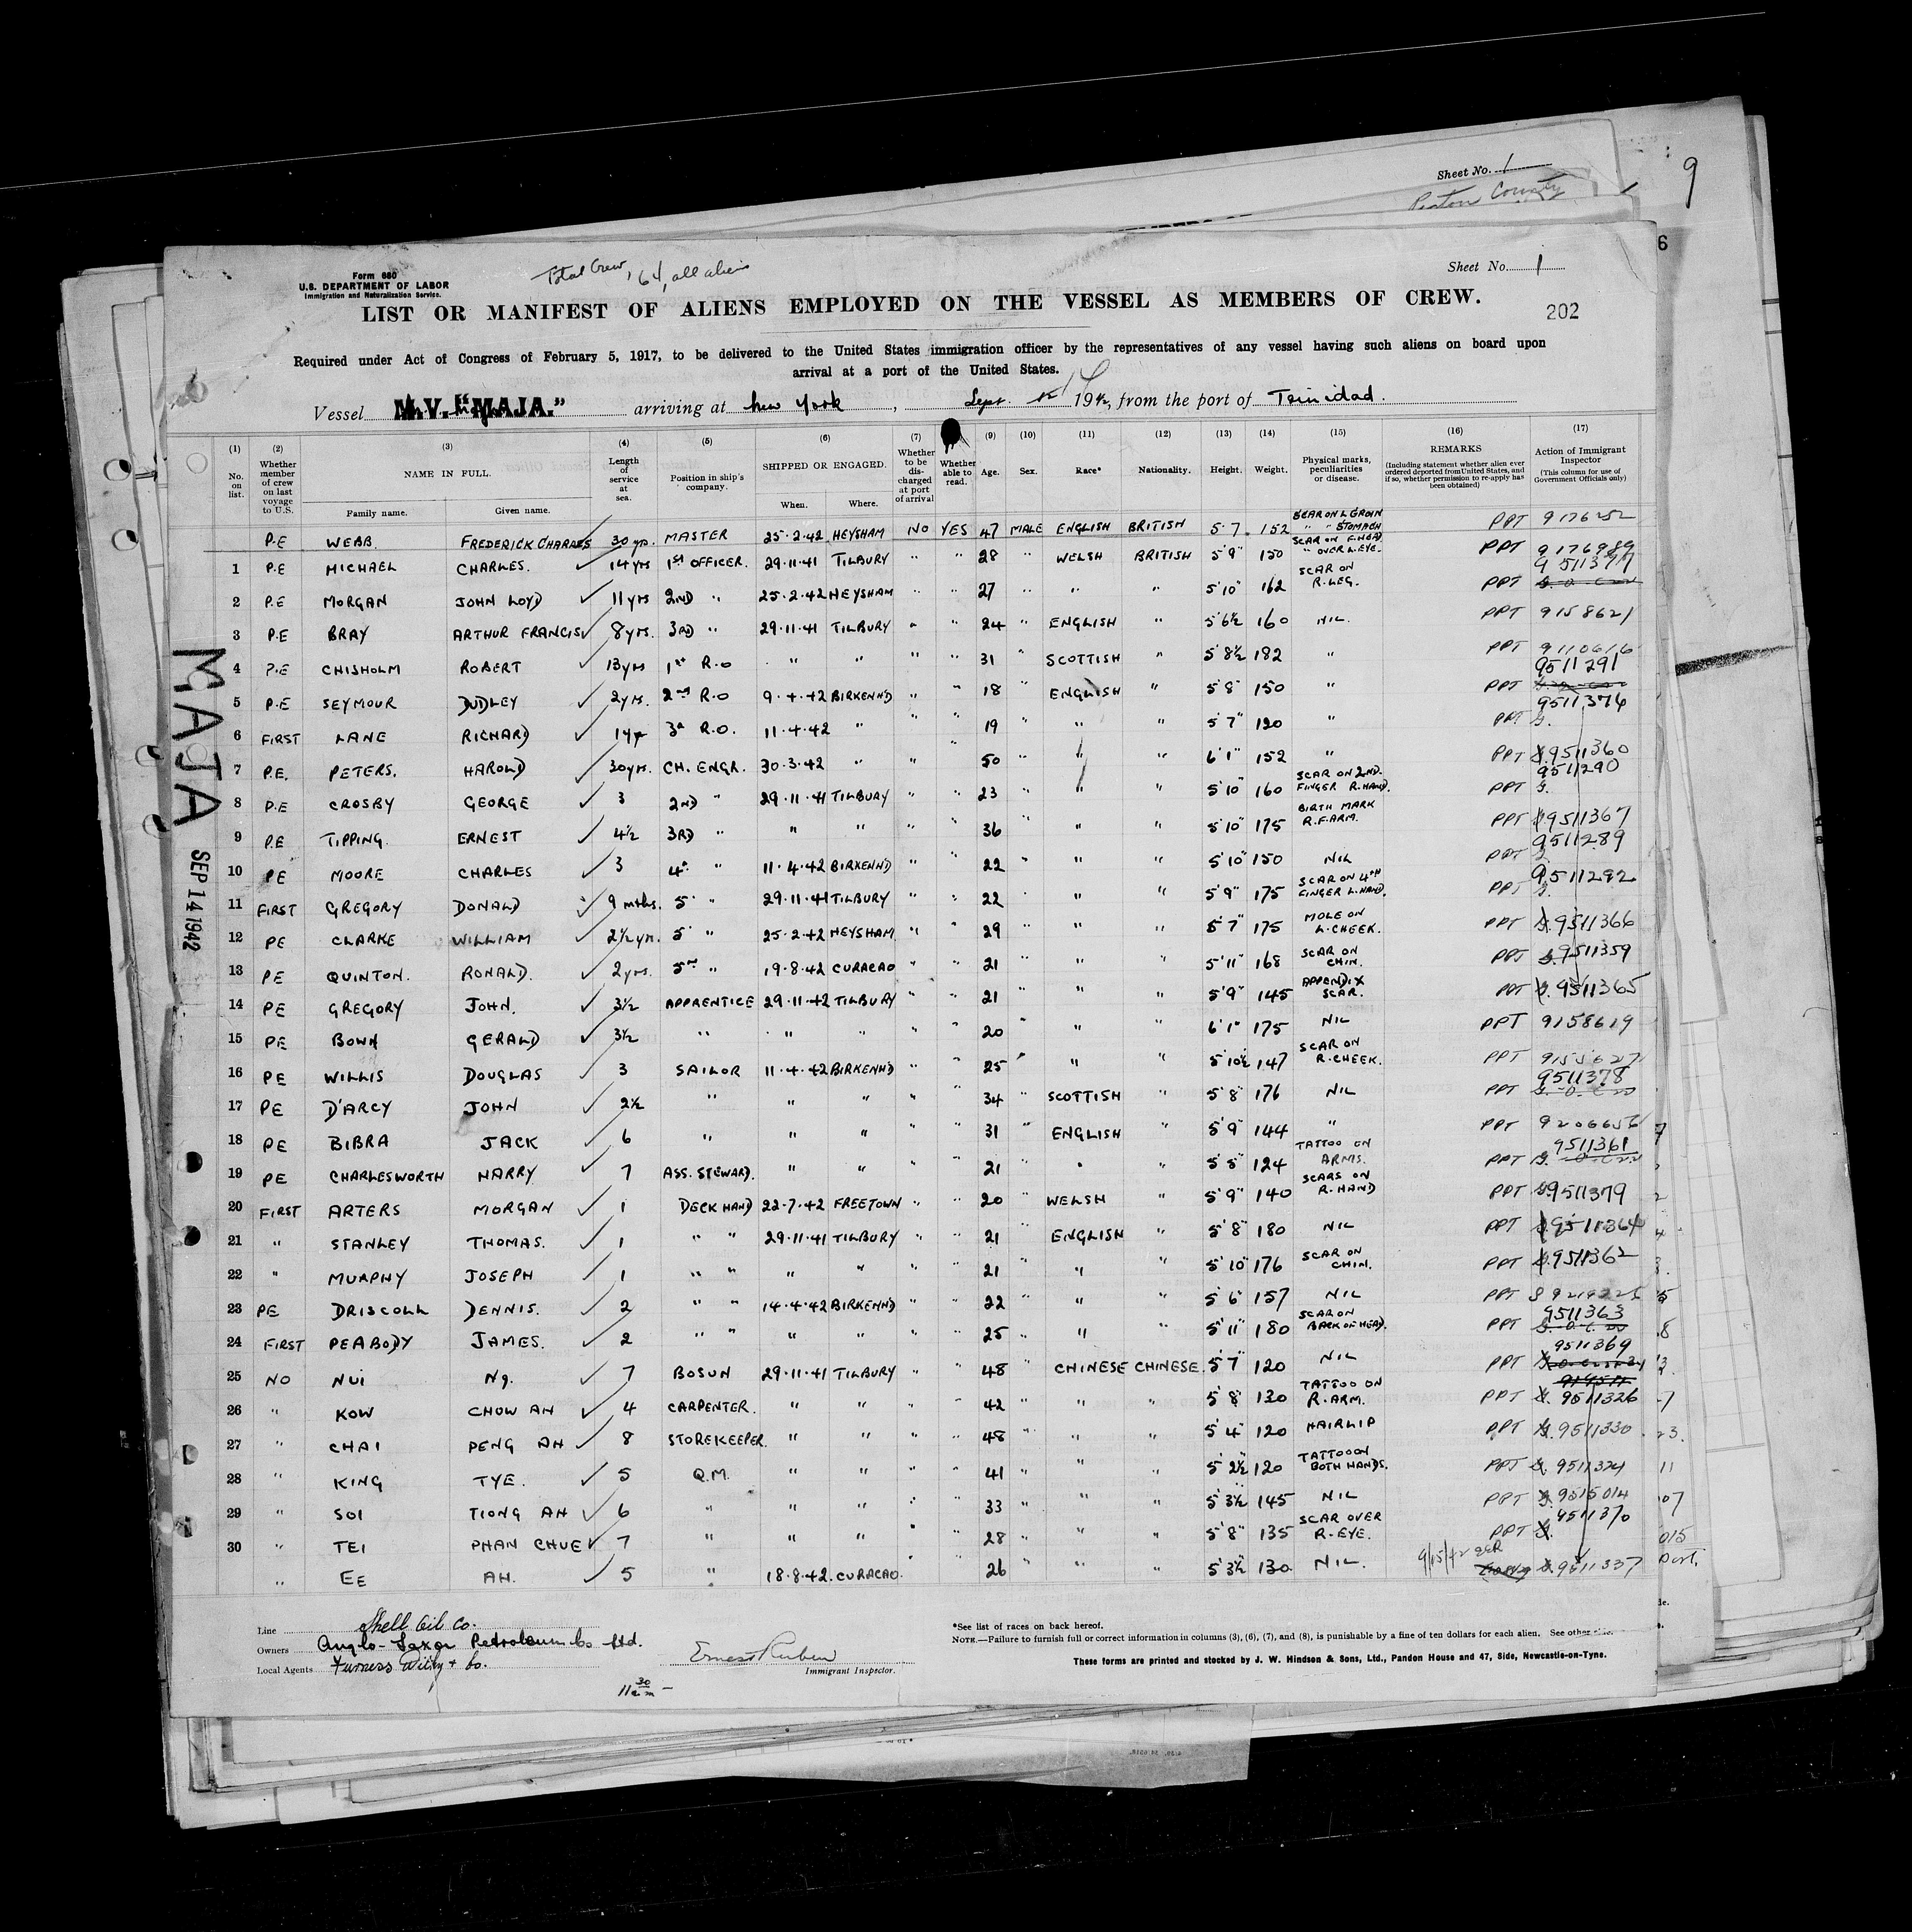 Sheet No. 1
County
9
6
Form 680
U.S. DEPARTMENT OF LABOR
Immigration and Naturalization Service.
Total Crew, 64, all aliens
Sheet No. 1
LIST OR MANIFEST OF ALIENS EMPLOYED ON THE VESSEL AS MEMBERS OF CREW.
202
Required under Act of Congress of February 5, 1917, to be delivered to the United States immigration officer by the representatives of any vessel having such aliens on board upon
arrival at a port of the United States.
Vessel M.V. "MAJA." arriving at New York, Sept. 14 1942, from the port of Trinidad.
(1) (2) (3) (4) (5) (6) (7) (9) (10) (11) (12) (13) (14) (15) (16) (17)
No. on list. Whether member of crew on last voyage to U.S. NAME IN FULL. Length of service at sea. Position in ship's company. SHIPPED OR ENGAGED. Whether to be discharged at port of arrival Whether able to read. Age. Sex. Race* Nationality. Height. Weight. Physical marks, peculiarities or disease. REMARKS (Including statement whether alien ever ordered deported from United States, and if so, whether permission to re-apply has been obtained) Action of Immigrant Inspector (This column for use of Government Officials only)
Family name. Given name. When. Where.
P.E WEBB FREDERICK CHARLES 30 yrs. MASTER 25.2.42 HEYSHAM NO YES 47 MALE ENGLISH BRITISH 5.7. 152 SCAR ON L GROIN " " STOMACH PPT 9176252
1 P.E MICHAEL CHARLES. 14 yrs 1st OFFICER. 29.11.41 TILBURY " " 28 " WELSH BRITISH 5'9" 150 SCAR ON F.HEAD " OVER L.EYE. PPT 9176989
2 P.E MORGAN JOHN LOYD 11 yrs 2ND " 25.2.42 HEYSHAM " " 27 " " " 5'10" 162 SCAR ON R.LEG. PPT 9511377
3 P.E BRAY ARTHUR FRANCIS 8 yrs. 3RD " 29.11.41 TILBURY " " 24 " ENGLISH " 5'6½ 160 NIL. PPT 9158621
4 P.E CHISHOLM ROBERT 13 yrs 1st R.O " " " " 31 " SCOTTISH " 5'8½ 182 " PPT 9110616
5 P.E SEYMOUR DUDLEY 2 yrs. 2nd R.O 9.4.42 BIRKENHD " " 18 " ENGLISH " 5'8" 150 " PPT 9511291
6 FIRST LANE RICHARD 1 yr 3rd R.O. 11.4.42 " " " 19 " " " 5'7" 120 " PPT 9511376
7 P.E. PETERS. HAROLD 30 yrs. CH. ENGR. 30.3.42 " " " 50 " " " 6'1" 152 " PPT 9511360
8 P.E CROSBY GEORGE 3 2ND " 29.11.41 TILBURY " " 23 " " " 5'10" 160 SCAR ON 2ND. FINGER R.HAND. PPT 9511290
9 P.E TIPPING. ERNEST 4½ 3RD " " " " " 36 " " 5'10" 175 BIRTH MARK R.F.ARM. PPT 9511367
10 PE MOORE CHARLES 3 4th " 11.4.42 BIRKENHD " 22 " " " 5'10" 150 NIL PPT 9511289
11 FIRST GREGORY DONALD 9 mths. 5 " 29.11.41 TILBURY " " 22 " " " 5'9" 175 SCAR ON 4TH FINGER L.HAND. PPT 9511292
12 PE CLARKE WILLIAM 2½ yrs. 5 " 25.2.42 HEYSHAM " " 29 " " " 5'7" 175 MOLE ON L.CHEEK. PPT 9511366
13 PE QUINTON. RONALD. 2 yrs. 5TH " 19.8.42 CURACAO " " 21 " " " 5'11" 168 SCAR ON CHIN. PPT 9511359
14 PE GREGORY JOHN. 3½ APPRENTICE 29.11.42 TILBURY " " 21 " " " 5'9" 145 APPENDIX SCAR. PPT 9511365
15 PE BOWN GERALD 3½ " " " " " 20 " " " 6'1" 175 NIL PPT 9158619
16 PE WILLIS DOUGLAS 3 SAILOR 11.4.42 BIRKENHD " 25 " " " 5'10½ 147 SCAR ON R.CHEEK. PPT 9155627
17 PE D'ARCY JOHN 2½ " " " " " 34 " SCOTTISH " 5'8" 176 NIL PPT 9511378
18 PE BIBRA JACK 6 " " " " " 31 " ENGLISH " 5'9" 144 " PPT 9206656
19 PE CHARLESWORTH HARRY 7 ASS. STEWARD. " " " " 21 " " " 5'5" 124 TATTOO ON ARMS. PPT 9511361
20 FIRST ARTERS MORGAN 1 DECK HAND 22.7.42 FREETOWN " " 20 " WELSH " 5'9" 140 SCARS ON R.HAND PPT 9511379
21 " STANLEY THOMAS. 1 " " 29.11.41 TILBURY " " 21 " ENGLISH " 5'8" 180 NIL PPT 9511364
22 " MURPHY JOSEPH 1 " " " " " " 21 " " 5'10" 176 SCAR ON CHIN. PPT 9511362
23 PE DRISCOLL DENNIS. 2 " " 14.4.42 BIRKENHD " " 22 " " " 5'6" 157 NIL PPT
24 FIRST PEABODY JAMES. 2 " " " " " " 25 " " " 5'11" 180 SCAR ON BACK OF HEAD. PPT 9511363
25 NO NUI NG. 7 BOSUN 29.11.41 TILBURY " " 48 " CHINESE CHINESE 5'7" 120 NIL PPT 9511369
26 " KOW CHOW AH 4 CARPENTER. " " " " 42 " " " 5'8" 130 TATTOO ON R.ARM. PPT 9511326
27 " CHAI PENG AH 8 STOREKEEPER. " " " " 48 " " " 5'4" 120 HAIRLIP PPT 9511330
28 " KING TYE. 5 Q.M. " " " " 41 " " " 5'2½" 120 TATTOO ON BOTH HANDS. PPT 9511324
29 " SOI TIONG AH 6 " " " " " 33 " " " 5'3½" 145 NIL PPT 9515014
30 " TEI PHAN CHUE 7 " " " " " 28 " " " 5'8" 135 SCAR OVER R-EYE. PPT 9511370
" EE AH. 5 " 18.8.42. CURACAO. " " 26 " " " 5'3½" 130 NIL. 9/15/42 9511337
MAJA SEP 14 1942
Line Shell Oil Co.
Owners Anglo-Saxon Petroleum Co Ltd.
Local Agents Furness Withy & Co.
Ernest Ruben
Immigrant Inspector.
11 30 a.m -
*See list of races on back hereof.
NOTE.—Failure to furnish full or correct information in columns (3), (6), (7), and (8), is punishable by a fine of ten dollars for each alien. See other side.
These forms are printed and stocked by J. W. Hindson & Sons, Ltd., Pandon House and 47, Side, Newcastle-on-Tyne.